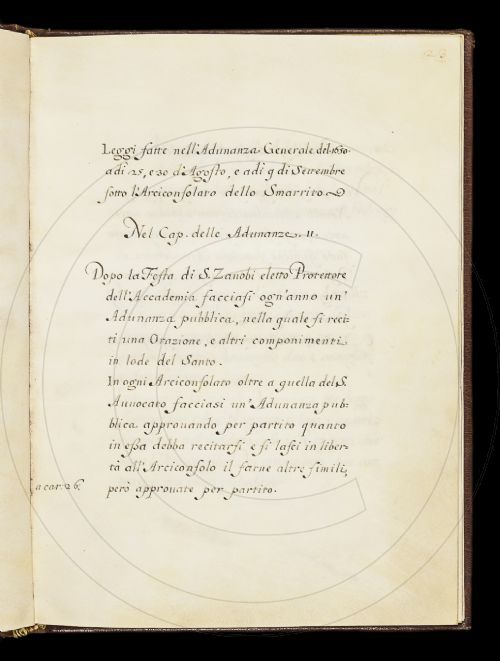 23
Leggi fatte nell'Adunanza Generale del 1650.
adì 25, e 30 d'Agosto, e adì 9 di Settembre
sotto l'Arciconsolato dello Smarrito.
Nel Cap. delle Adunanze. 11.
Dopo la Festa di S. Zanobi eletto Protettore
dell'Accademia facciasi ogn'anno un'
Adunanza pubblica, nella quale si reci-
ti una Orazione, e altri componimenti
in lode del Santo.
In ogni Arciconsolato oltre a quella del S.
Auuocato facciasi un'Adunanza pub-
blica approuando per partito quanto
in essa debba recitarsi e si lasci in liber-
tà all'Arciconsolo il farne altre simili,
a car. 26. però approuate per partito.